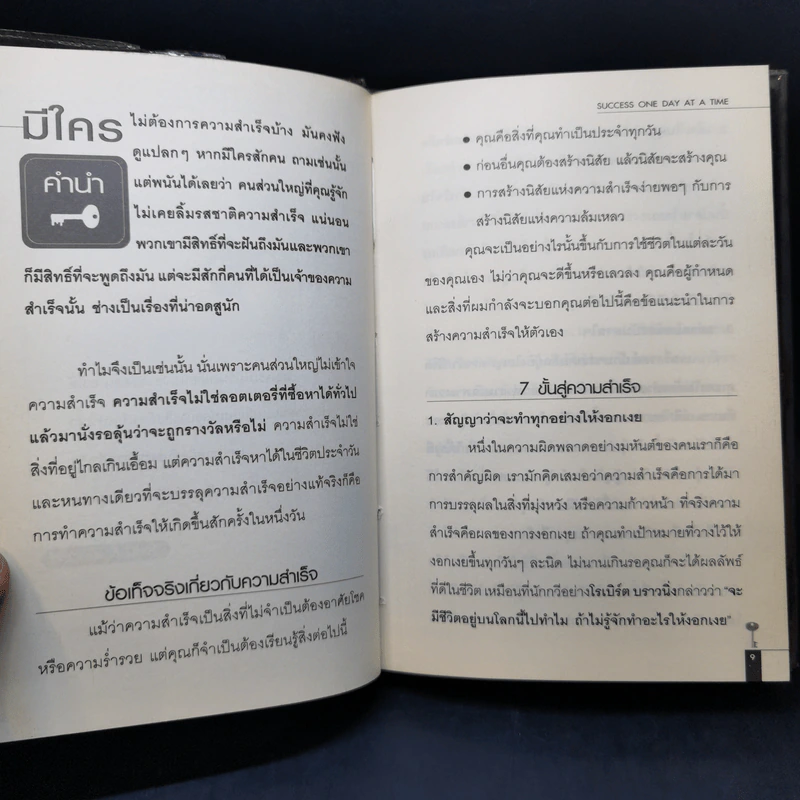 มีใคร ไม่ต้องการความสำเร็จบ้าง มันคงฟัง
ดูแปลกๆ หากมีใครสักคน ถามเช่นนั้น
คำนำ
แต่พนันได้เลยว่า คนส่วนใหญ่ที่คุณรู้จัก
ไม่เคยลิ้มรสชาติความสำเร็จ แน่นอน
พวกเขามีสิทธิ์ที่จะฝันถึงมันและพวกเขา
ก็มีสิทธิ์ที่จะพูดถึงมัน แต่จะมีสักกี่คนที่ได้เป็นเจ้าของความ
สำเร็จนั้น ช่างเป็นเรื่องที่น่าอดสูนัก
ทำไมจึงเป็นเช่นนั้น นั่นเพราะคนส่วนใหญ่ไม่เข้าใจ
ความสำเร็จ ความสำเร็จไม่ใช่ลอตเตอรี่ที่ซื้อหาได้ทั่วไป
แล้วมานั่งรอลุ้นว่าจะถูกรางวัลหรือไม่ ความสำเร็จไม่ใช่
สิ่งที่อยู่ไกลเกินเอื้อม แต่ความสำเร็จหาได้ในชีวิตประจำวัน
และหนทางเดียวที่จะบรรลุความสำเร็จอย่างแท้จริงก็คือ
การทำความสำเร็จให้เกิดขึ้นสักครั้งในหนึ่งวัน
ข้อเท็จจริงเกี่ยวกับความสำเร็จ
แม้ว่าความสำเร็จเป็นสิ่งที่ไม่จำเป็นต้องอาศัยโชค
หรือความร่ำรวย แต่คุณก็จำเป็นต้องเรียนรู้สิ่งต่อไปนี้
SUCCESS ONE DAY AT A TIME
• คุณคือสิ่งที่คุณทำเป็นประจำทุกวัน
• ก่อนอื่นคุณต้องสร้างนิสัย แล้วนิสัยจะสร้างคุณ
• การสร้างนิสัยแห่งความสำเร็จง่ายพอๆ กับการ
สร้างนิสัยแห่งความล้มเหลว
คุณจะเป็นอย่างไรนั้นขึ้นกับการใช้ชีวิตในแต่ละวัน
ของคุณเอง ไม่ว่าคุณจะดีขึ้นหรือเลวลง คุณคือผู้กำหนด
และสิ่งที่ผมกำลังจะบอกคุณต่อไปนี้คือข้อแนะนำในการ
สร้างความสำเร็จให้ตัวเอง
7 ขั้นสู่ความสำเร็จ
1. สัญญาว่าจะทำทุกอย่างให้งอกเงย
หนึ่งในความผิดพลาดอย่างมหันต์ของคนเราก็คือ
การสำคัญผิด เรามักคิดเสมอว่าความสำเร็จคือการได้มา
การบรรลุผลในสิ่งที่มุ่งหวัง หรือความก้าวหน้า ที่จริงความ
สำเร็จคือผลของการงอกเงย ถ้าคุณทำเป้าหมายที่วางไว้ให้
งอกเงยขึ้นทุกวันๆ ละนิด ไม่นานเกินรอคุณก็จะได้ผลลัพธ์
ที่ดีในชีวิต เหมือนที่นักกวีอย่างโรเบิร์ต บราวนิ่งกล่าวว่า "จะ
มีชีวิตอยู่บนโลกนี้ไปทำไม ถ้าไม่รู้จักทำอะไรให้งอกเงย"
9